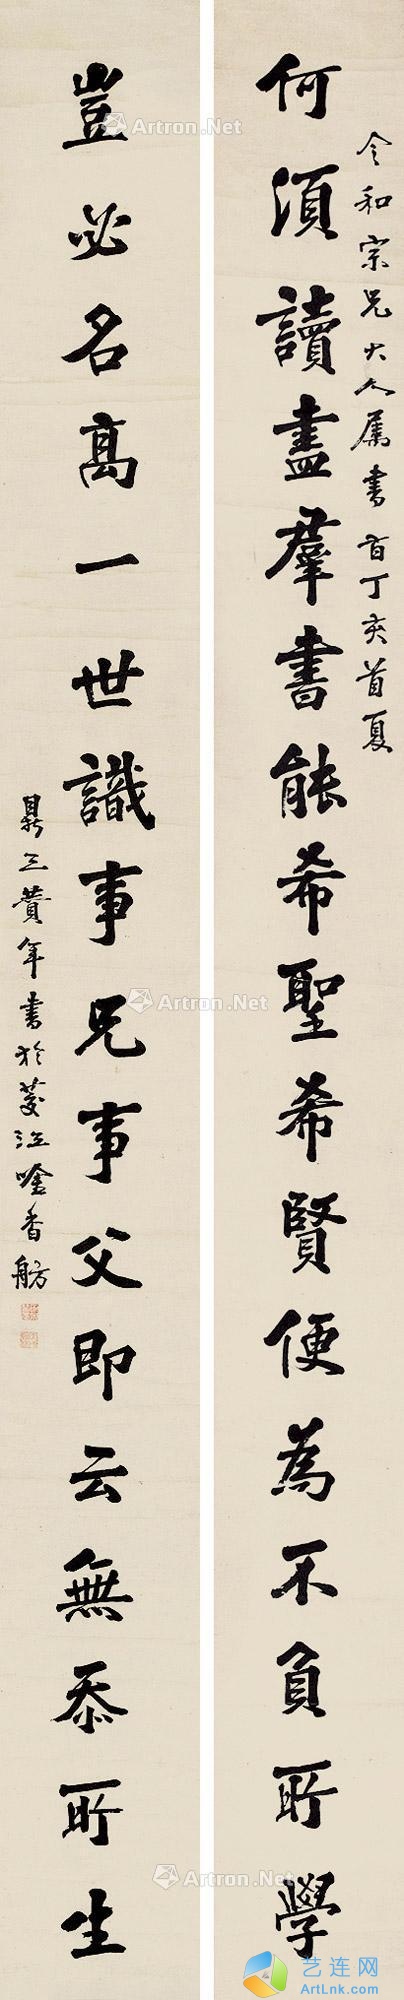 令和宗兄大人属书 时丁亥首夏
何須讀盡羣書能希聖希賢便為不負所學
豈必名高一世識事兄事父即云無忝所生
鼎三費年書於菱江唅香舫
Artron.Net
Artron.Net
Artron.Net
Artron.Net
Artron.Net
Artron.Net
艺连网
ArtLnk.com